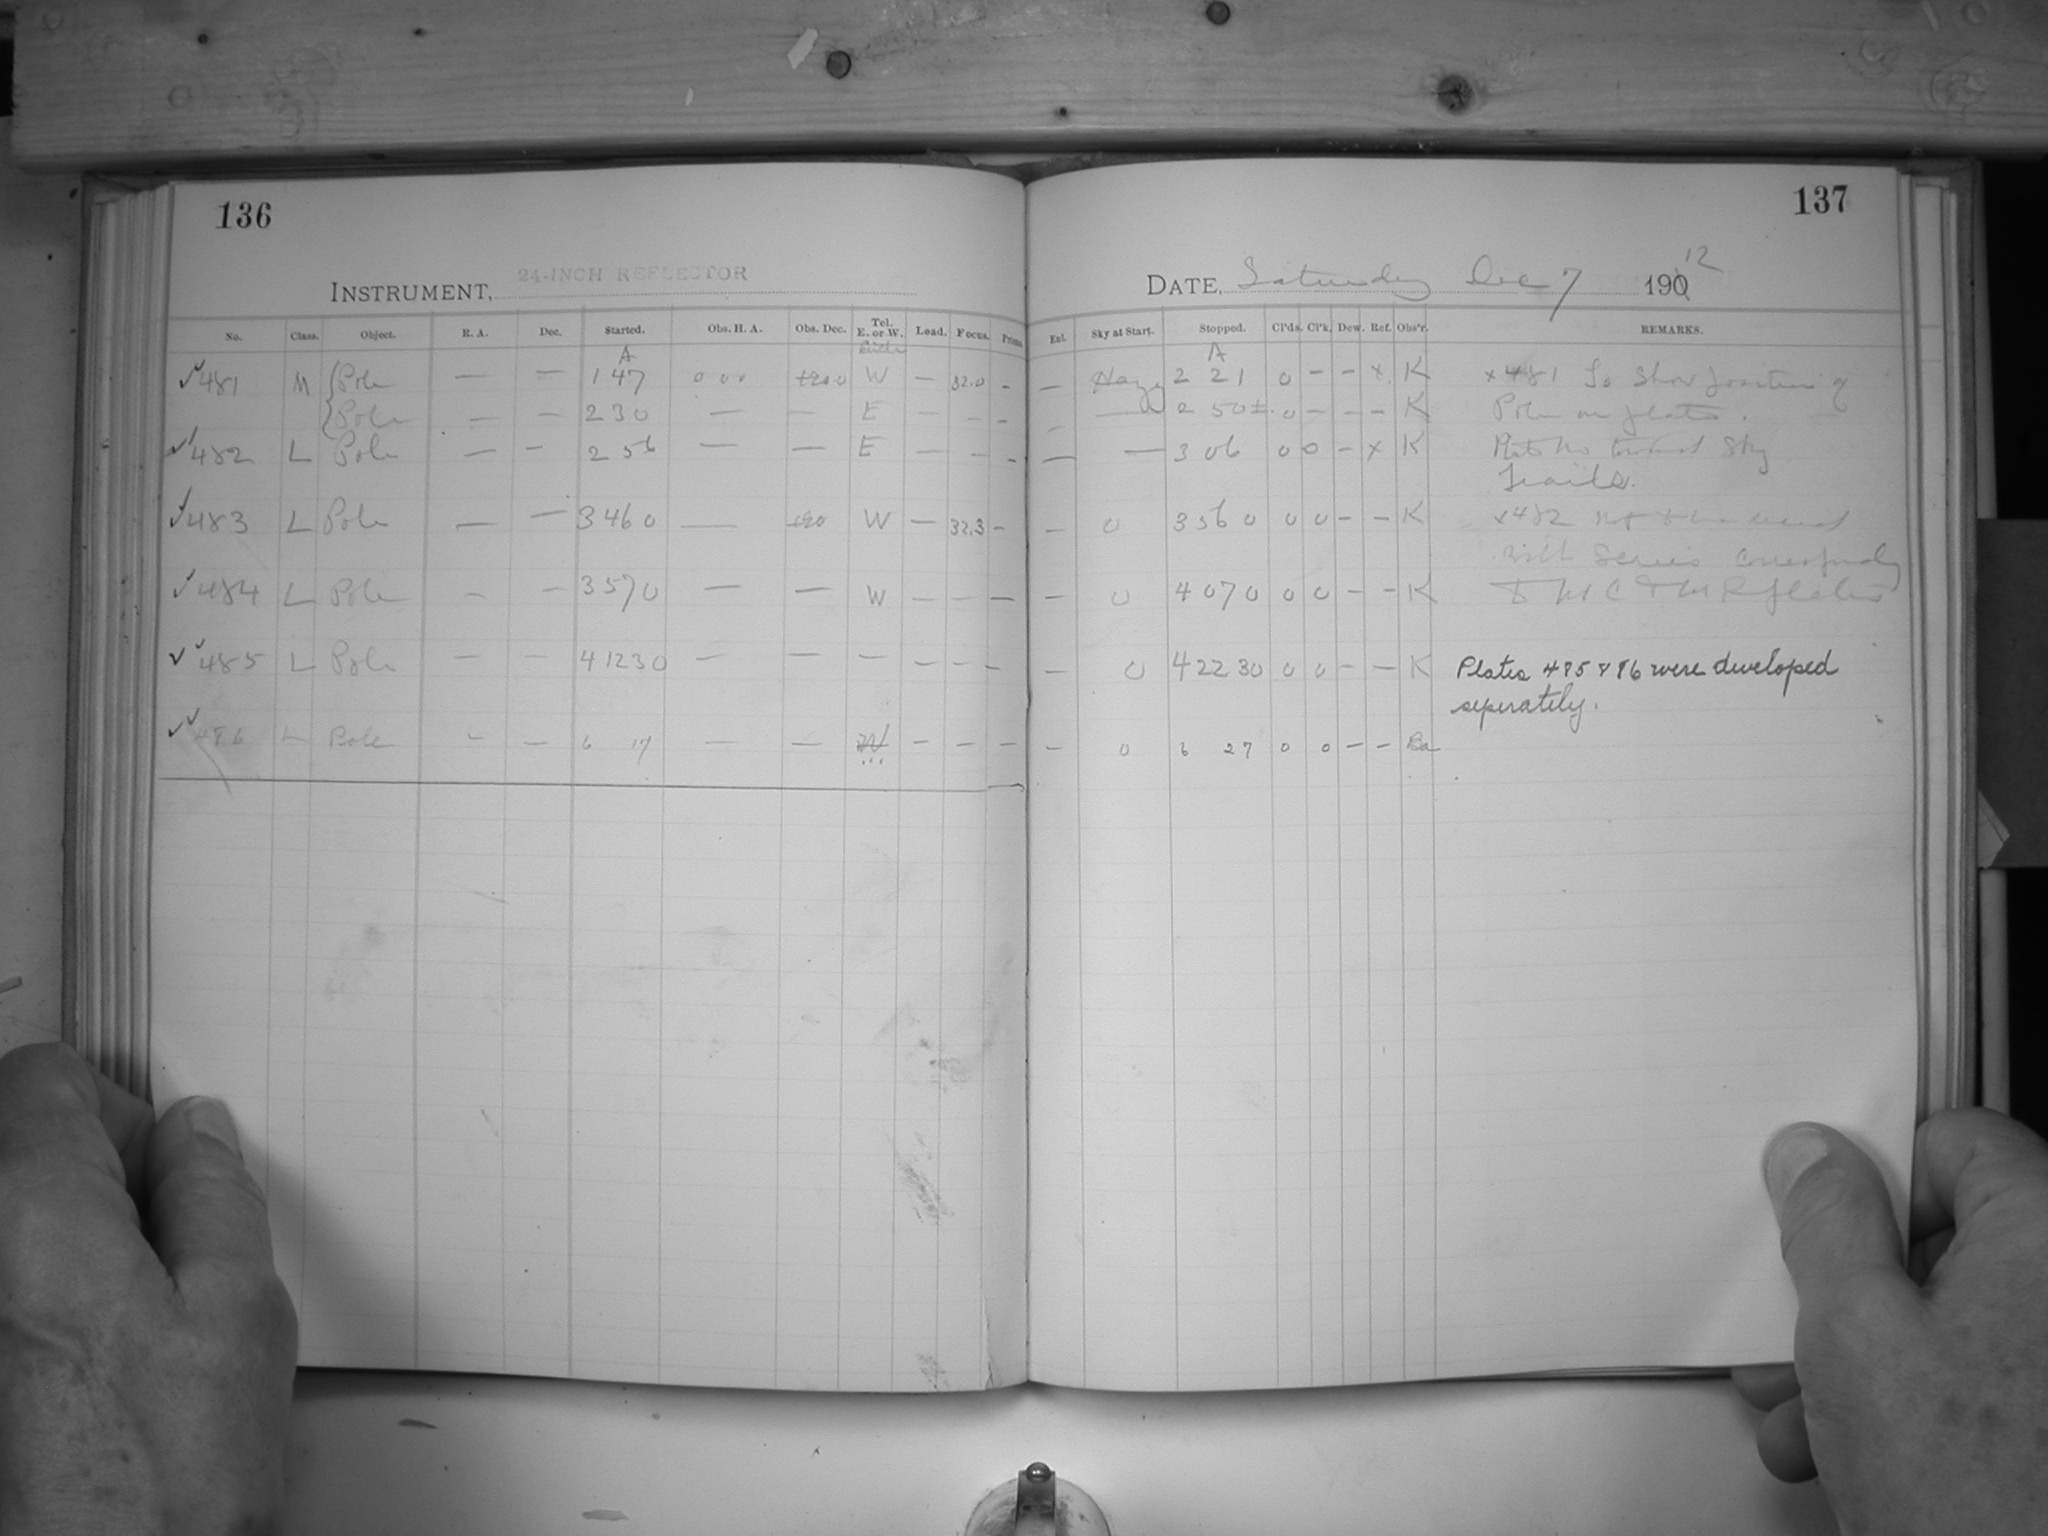 136
137
INSTRUMENT, 24-INCH REFLECTOR
DATE, Saturday Dec 7 190 12
No. Class. Object. R. A. Dec. Started. Obs. H. A. Obs. Dec. Tel. E. or W. Load. Focus. Prism.
Ext. Sky at Start. Stopped. Cl'ds. Cl'k. Dew. Ref. Obs'r. REMARKS.
A
A
✓ 481 M Pole — — 1 47 0 0 0 +90 0 W — 32.0 -
— Hazy 2 21 0 - - x K x 481 To Show position of
Pole — — 2 30 — E — - -
— 2 50 ± 0 - - - K Pole on plate.
✓ 482 L Pole — - 2 56 — — E — - -
— — 3 06 0 0 - x K
Trails.
✓ 483 L Pole — — 3 46 0 — +90 W — 32.3 -
— 0 3 56 0 0 0 - - K x 482 not
with Series
✓ 484 L Pole - — 3 57 0 — — W — — —
— 0 4 07 0 0 0 - - K
✓ 485 L Pole — — 4 12 30 — — — — - -
— 0 4 22 30 0 0 - - K Plates 485 & 86 were developed
seperately.
✓ 486 L Pole - — 6 17 — — W — — —
— 0 6 27 0 0 - - Ba